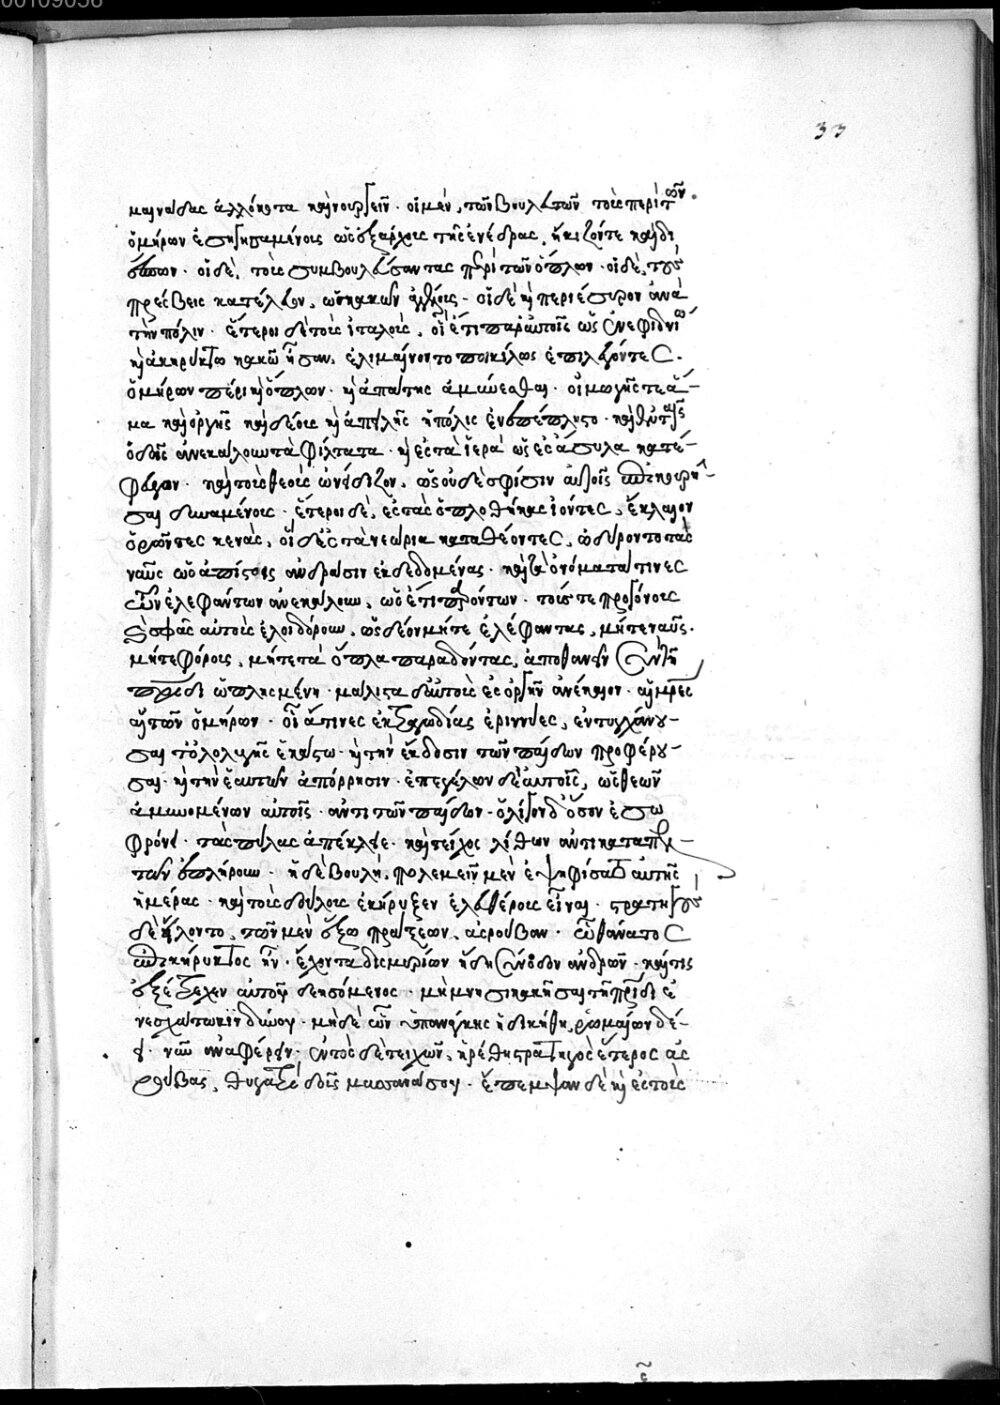 μαινάδας ἀλλόκοτα καὶ νουργεῖν· οἱ μὲν, τῶν βουλευτῶν τοὺς περὶ τῶν
ὁμήρων ἐσηγησαμένους ὡς ἐξάρχους τῆς ἐνέδρας, ἠκίζοντε καὶ δι
έσπων· οἱ δὲ, τοὺς συμβουλεύσαντας περὶ τῶν ὅπλων· οἱ δὲ, τοὺς
πρέσβεις κατέλευον, ὡς κακῶν ἀγγέλους· οἱ δὲ καὶ περιέσυρον ἀνὰ
τὴν πόλιν· ἕτεροι δὲ τοὺς ἰταλοὺς, οἳ ἔτι παρ' αὐτοῖς ὡς ἐν ἐφιδνίω
καὶ ἀκηρύκτω κακῶ ἦσαν, ἐλυμαίνοντο ποικίλως ἐπιλέγοντες·
ὁμήρων πέρι καὶ ὅπλων· καὶ ἀπάτης ἀμύνεσθαι· οἰμωγῆς τε ἅ-
μα καὶ ὀργῆς καὶ δέους καὶ ἀπειλῆς ἡ πόλις ἐνεπέπληστο· καὶ ἐν ταῖς
ὁδοῖς ἀνεκάλουν τὰ φίλτατα· καὶ ἐς τὰ ἱερὰ ὡς ἐς ἄσυλα κατέ-
φευγον· καὶ τοὺς θεοὺς ὠνείδιζον, ὡς οὐδὲ σφίσιν αὐτοῖς ἐπικουρῆ-
σαι δυναμένους· ἕτεροι δὲ, ἐς τὰς ὁπλοθήκας ἰόντες, ἔκλαιον
ὁρῶντες κενάς, οἱ δ' ἐς τὰ νεώρια καταθέοντες, ὠδύροντο τὰς
ναῦς ὡς ἀπίστοις ἀνδράσιν ἐκδεδομένας· καὶ τὰ ὀνόματα τινες
τῶν ἐλεφάντων ἀνεκάλουν, ὡς ἔτι παρόντων· τούς τε προγόνους
καὶ σφᾶς αὐτοὺς ἐλοιδόρουν, ὡς δέον μήτε ἐλέφαντας, μήτε ναῦς·
μήτε φόρους, μήτε τὰ ὅπλα παραδόντας, ἀποθανεῖν σὺν τῆ
πατρίδι ὡπλισμένη· μάλιστα δ' αὐτοὺς ἐς ὀργὴν ἀνέκαιον· αἱ μητέρες
αἱ τῶν ὁμήρων· οἷά τινες ἐκ τραγωδίας ἐριννύες, ἐντυγχάνου-
σαι τ' ὀλολυγῆς ἑκάστω· καὶ τὴν ἔκδοσιν τῶν παίδων προφέρου-
σαι· καὶ τὴν ἑαυτῶν ἀπόρρησιν· ἐπεγέλων δὲ αὐτοῖς, ὡς θεῶν
ἀμυνομένων αὐτοῖς· ἀντὶ τῶν παίδων· ὀλίγον δ' ὅσον ἐσω
φρόνει· τὰς πύλας ἀπέκλειε· καὶ τεῖχος λίθων ἀντὶ καταπελ-
τῶν ἐπλήρουν· ἡ δὲ βουλὴ, πολεμεῖν μὲν ἐψηφίσατο αὐτῆς
ἡμέρας· καὶ τοὺς δούλους ἐκήρυξεν ἐλευθέρους εἶναι· στρατηγοὺς
δὲ εἵλοντο, τῶν μὲν ἔξω πράξεων, ἀσρούβαν· ὧ θάνατος
ἐπικήρυκτος ἦν· ἔχοντα δισμυρίων ἤδη σύνοδον ἀνδρῶν· καί τις
ἐξέτρεχεν αὐτοῦ δεησόμενος· μὴ μνησικακῆσαι τῆ πατρίδι ἐ
νεσχάτω κινδύνου· μὴ δὲ ὧν ὑπ' ἀνάγκης ἠδικήθη, ῥωμαίων δέ-
ει· νῦν ἀναφέρειν· ἐντὸς δὲ τειχῶν, ἡρέθη στρατηγὸς ἕτερος ἀσ
ρούβας, θυγατριδοῦς μασσανάσσου· ἔπεμψαν δὲ καὶ ἐς τοὺς
33